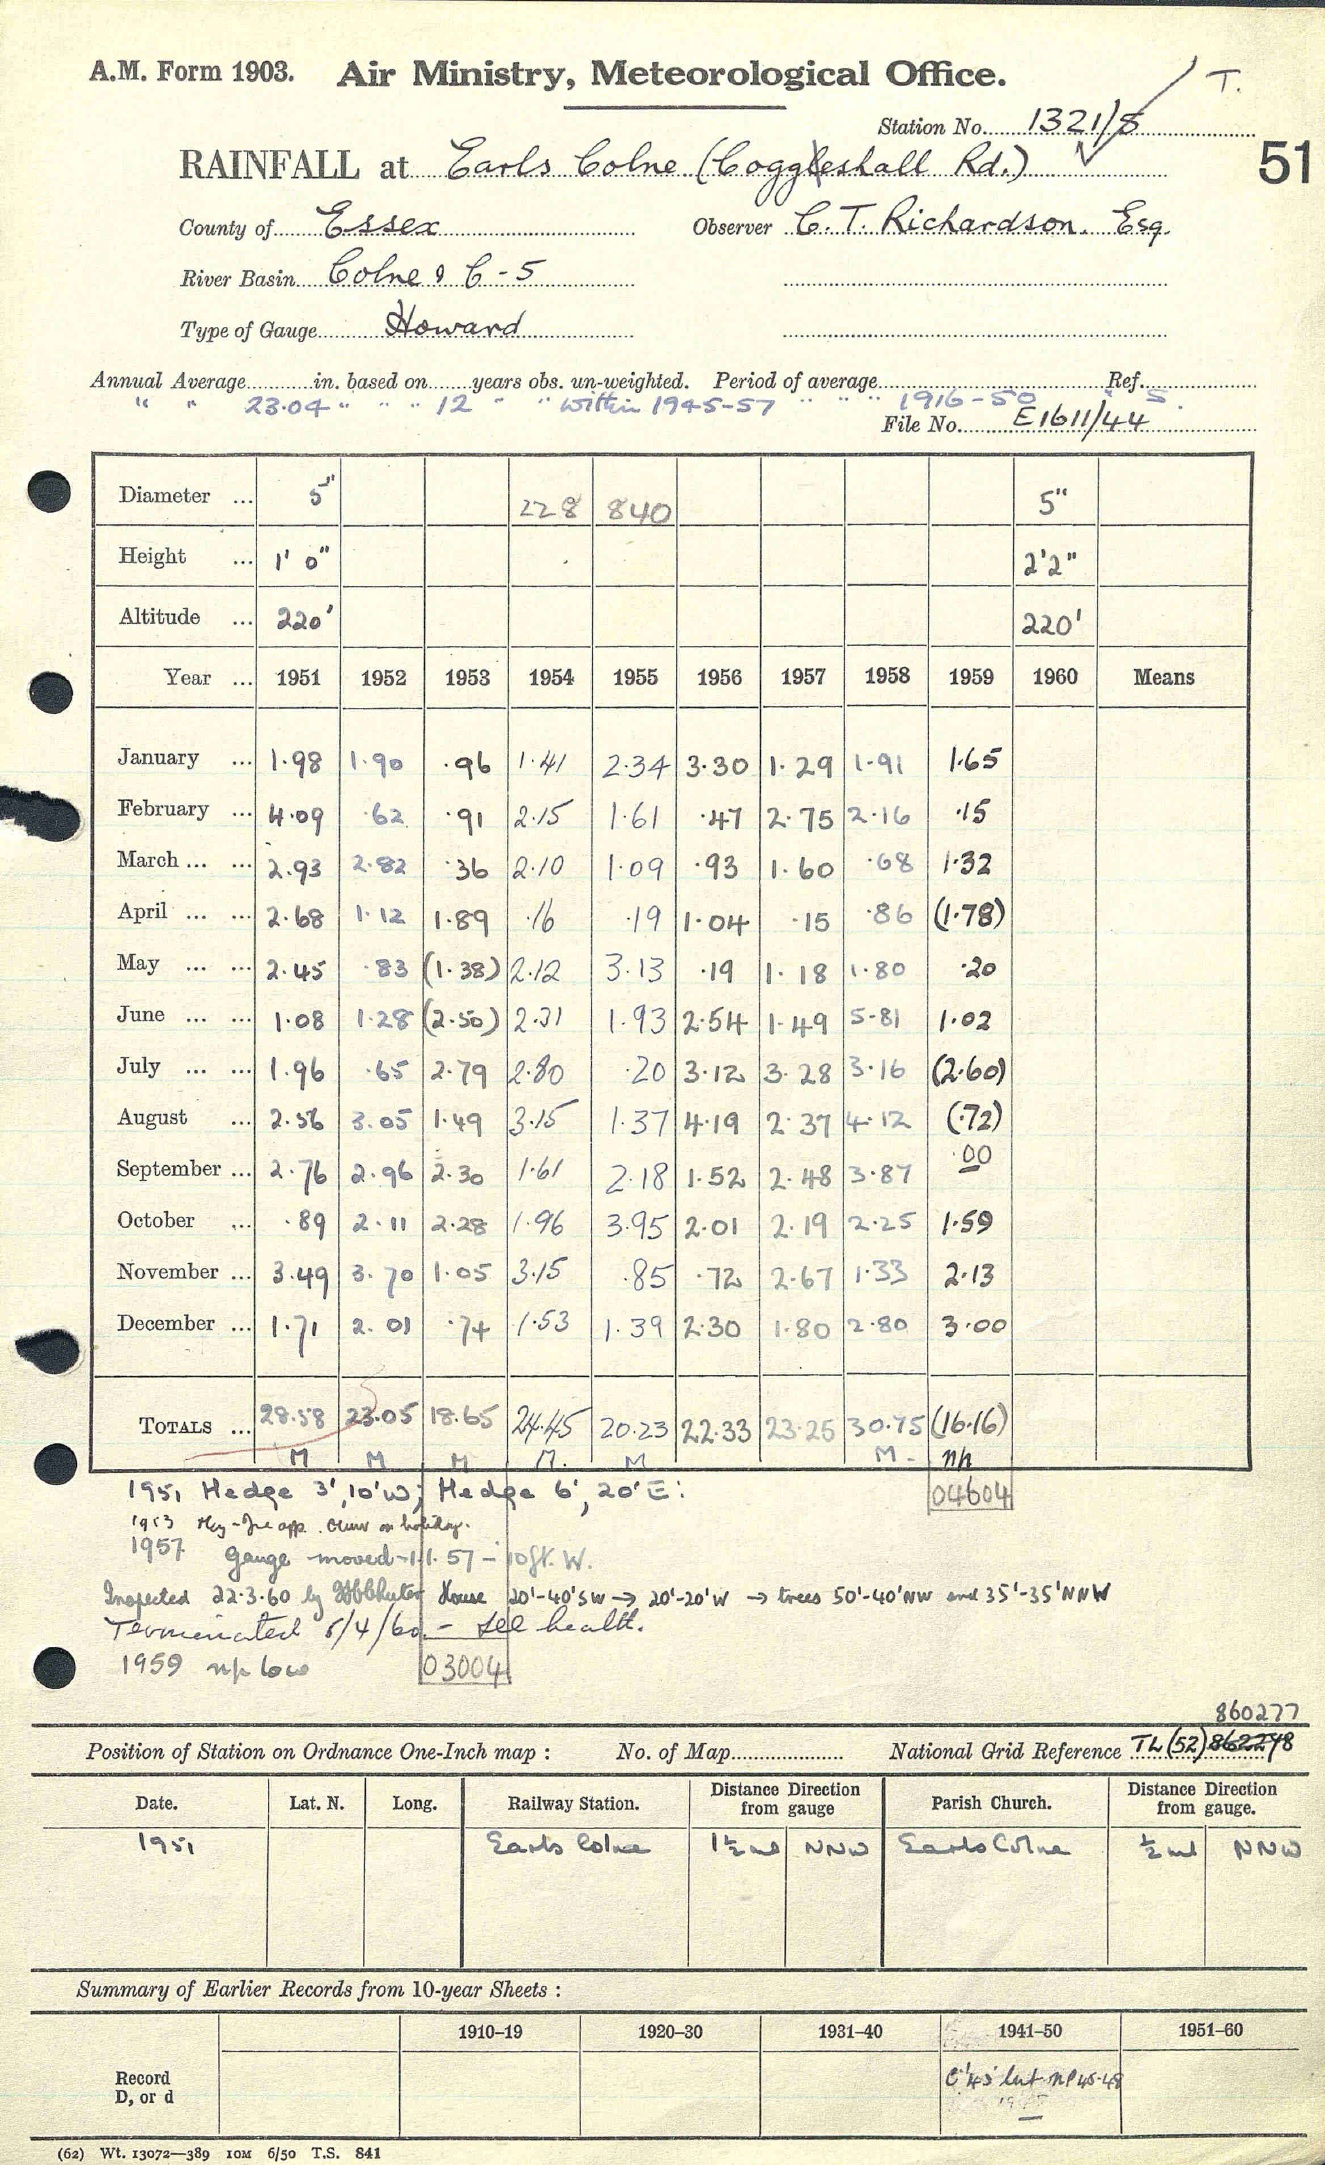 A.M. Form 1903. Air Ministry, Meteorological Office.
T.
Station No. 1321/8
RAINFALL at Earls Colne (Coggeshall Rd.)
51
County of Essex Observer C.T. Richardson. Esq.
River Basin Colne & C-5
Type of Gauge Howard
Annual Average in. based on years obs. un-weighted. Period of average Ref.
" " 23.04 " " " 12 " " within 1945-57 " " " 1916-50 " S.
File No. E1611/44
Diameter ... 5" 228 840 5"
Height ... 1' 0" 2'2"
Altitude ... 220' 220'
Year ... 1951 1952 1953 1954 1955 1956 1957 1958 1959 1960 Means
January ... 1.98 1.90 .96 1.41 2.34 3.30 1.29 1.91 1.65
February ... 4.09 .62 .91 2.15 1.61 .47 2.75 2.16 .15
March ... ... 2.93 2.82 .36 2.10 1.09 .93 1.60 .68 1.32
April ... ... 2.68 1.12 1.89 .16 .19 1.04 .15 .86 (1.78)
May ... ... 2.45 .83 (1.38) 2.12 3.13 .19 1.18 1.80 .20
June ... ... 1.08 1.28 (2.50) 2.31 1.93 2.54 1.49 5.81 1.02
July ... ... 1.96 .65 2.79 2.80 .20 3.12 3.28 3.16 (2.60)
August ... 2.56 3.05 1.49 3.15 1.37 4.19 2.37 4.12 (.72)
September ... 2.76 2.96 2.30 1.61 2.18 1.52 2.48 3.87 .00
October ... .89 2.11 2.28 1.96 3.95 2.01 2.19 2.25 1.59
November ... 3.49 3.70 1.05 3.15 .85 .72 2.67 1.33 2.13
December ... 1.71 2.01 .74 1.53 1.39 2.30 1.80 2.80 3.00
TOTALS ... 28.58 23.05 18.65 24.45 20.23 22.33 23.25 30.75 (16.16)
M M M M. M M. np
1951 Hedge 3', 10'W; Hedge 6', 20'E:
04604
1953 May-Jne app. Obsvr on holiday.
1957 Gauge moved 1.1.57 - 10ft. W.
Inspected 22.3.60 by House 20'-40'SW → 20'-20'W → trees 50'-40'NW and 35'-35'NNW
Terminated 5/4/60 - ill health.
1959 np low
03004
860277
Position of Station on Ordnance One-Inch map : No. of Map National Grid Reference TL (52) 862278
Date. Lat. N. Long. Railway Station. Distance Direction from gauge Parish Church. Distance Direction from gauge.
1951 Earls Colne 1½ ml NNW Earls Colne ½ ml NNW
Summary of Earlier Records from 10-year Sheets :
1910–19 1920–30 1931–40 1941–50 1951–60
Record
D, or d
C'43 but np 45-48
(62) Wt. 13072—389 10M 6/50 T.S. 841